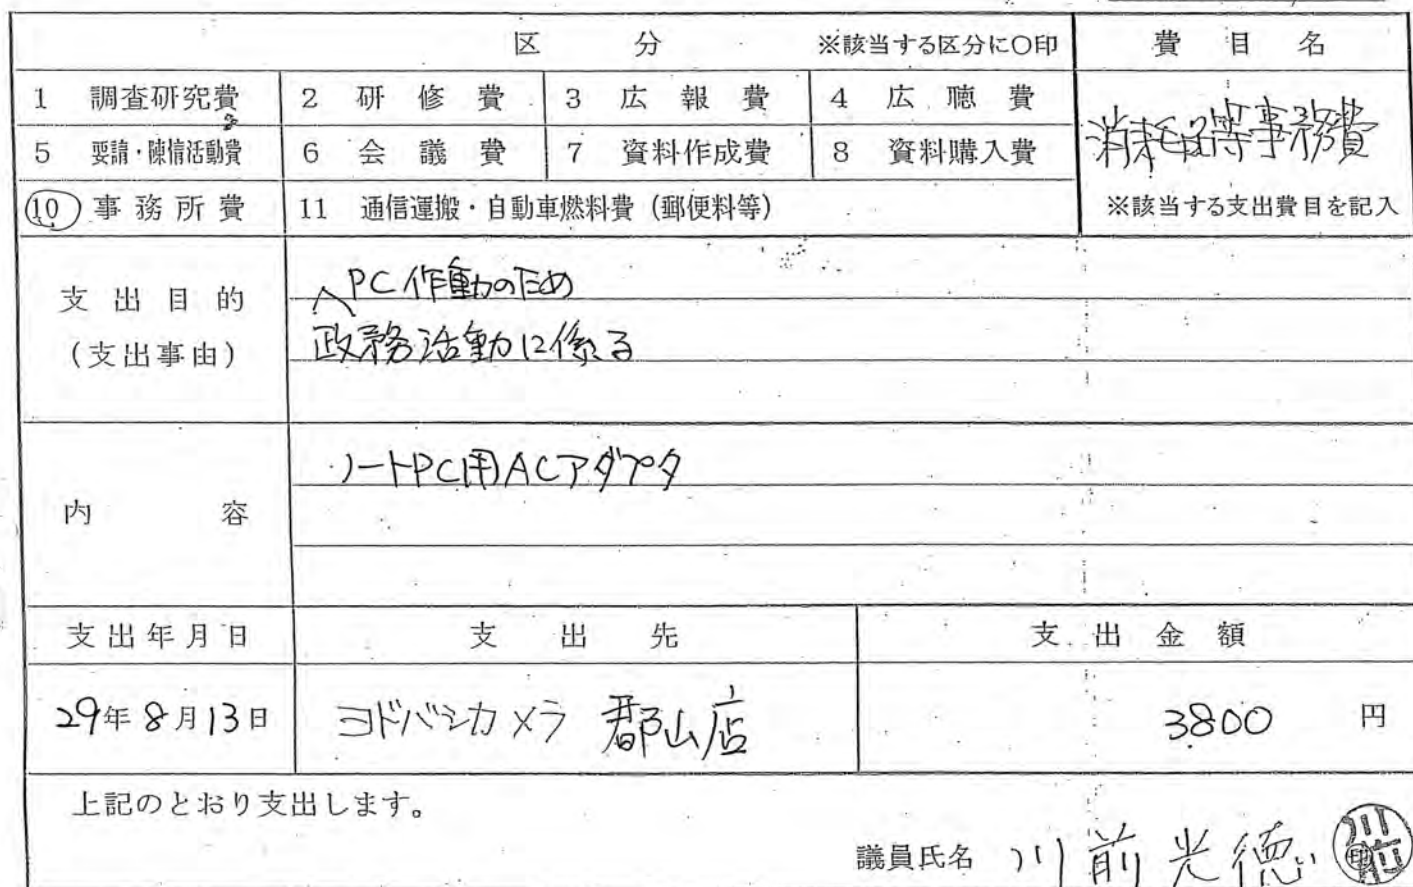 区分 ※該当する区分に○印 費目名
1 調査研究費 2 研修費 3 広報費 4 広聴費
消耗品等事務費
5 要請・陳情活動費 6 会議費 7 資料作成費 8 資料購入費
10 事務所費 11 通信運搬・自動車燃料費（郵便料等） ※該当する支出費目を記入
支出目的
（支出事由）
PC作動のため
政務活動に係る
内容
ノートPC用ACアダプタ
支出年月日 支出先 支出金額
29年8月13日 ヨドバシカメラ 郡山店 3800 円
上記のとおり支出します。
議員氏名 川前光徳 川前 印